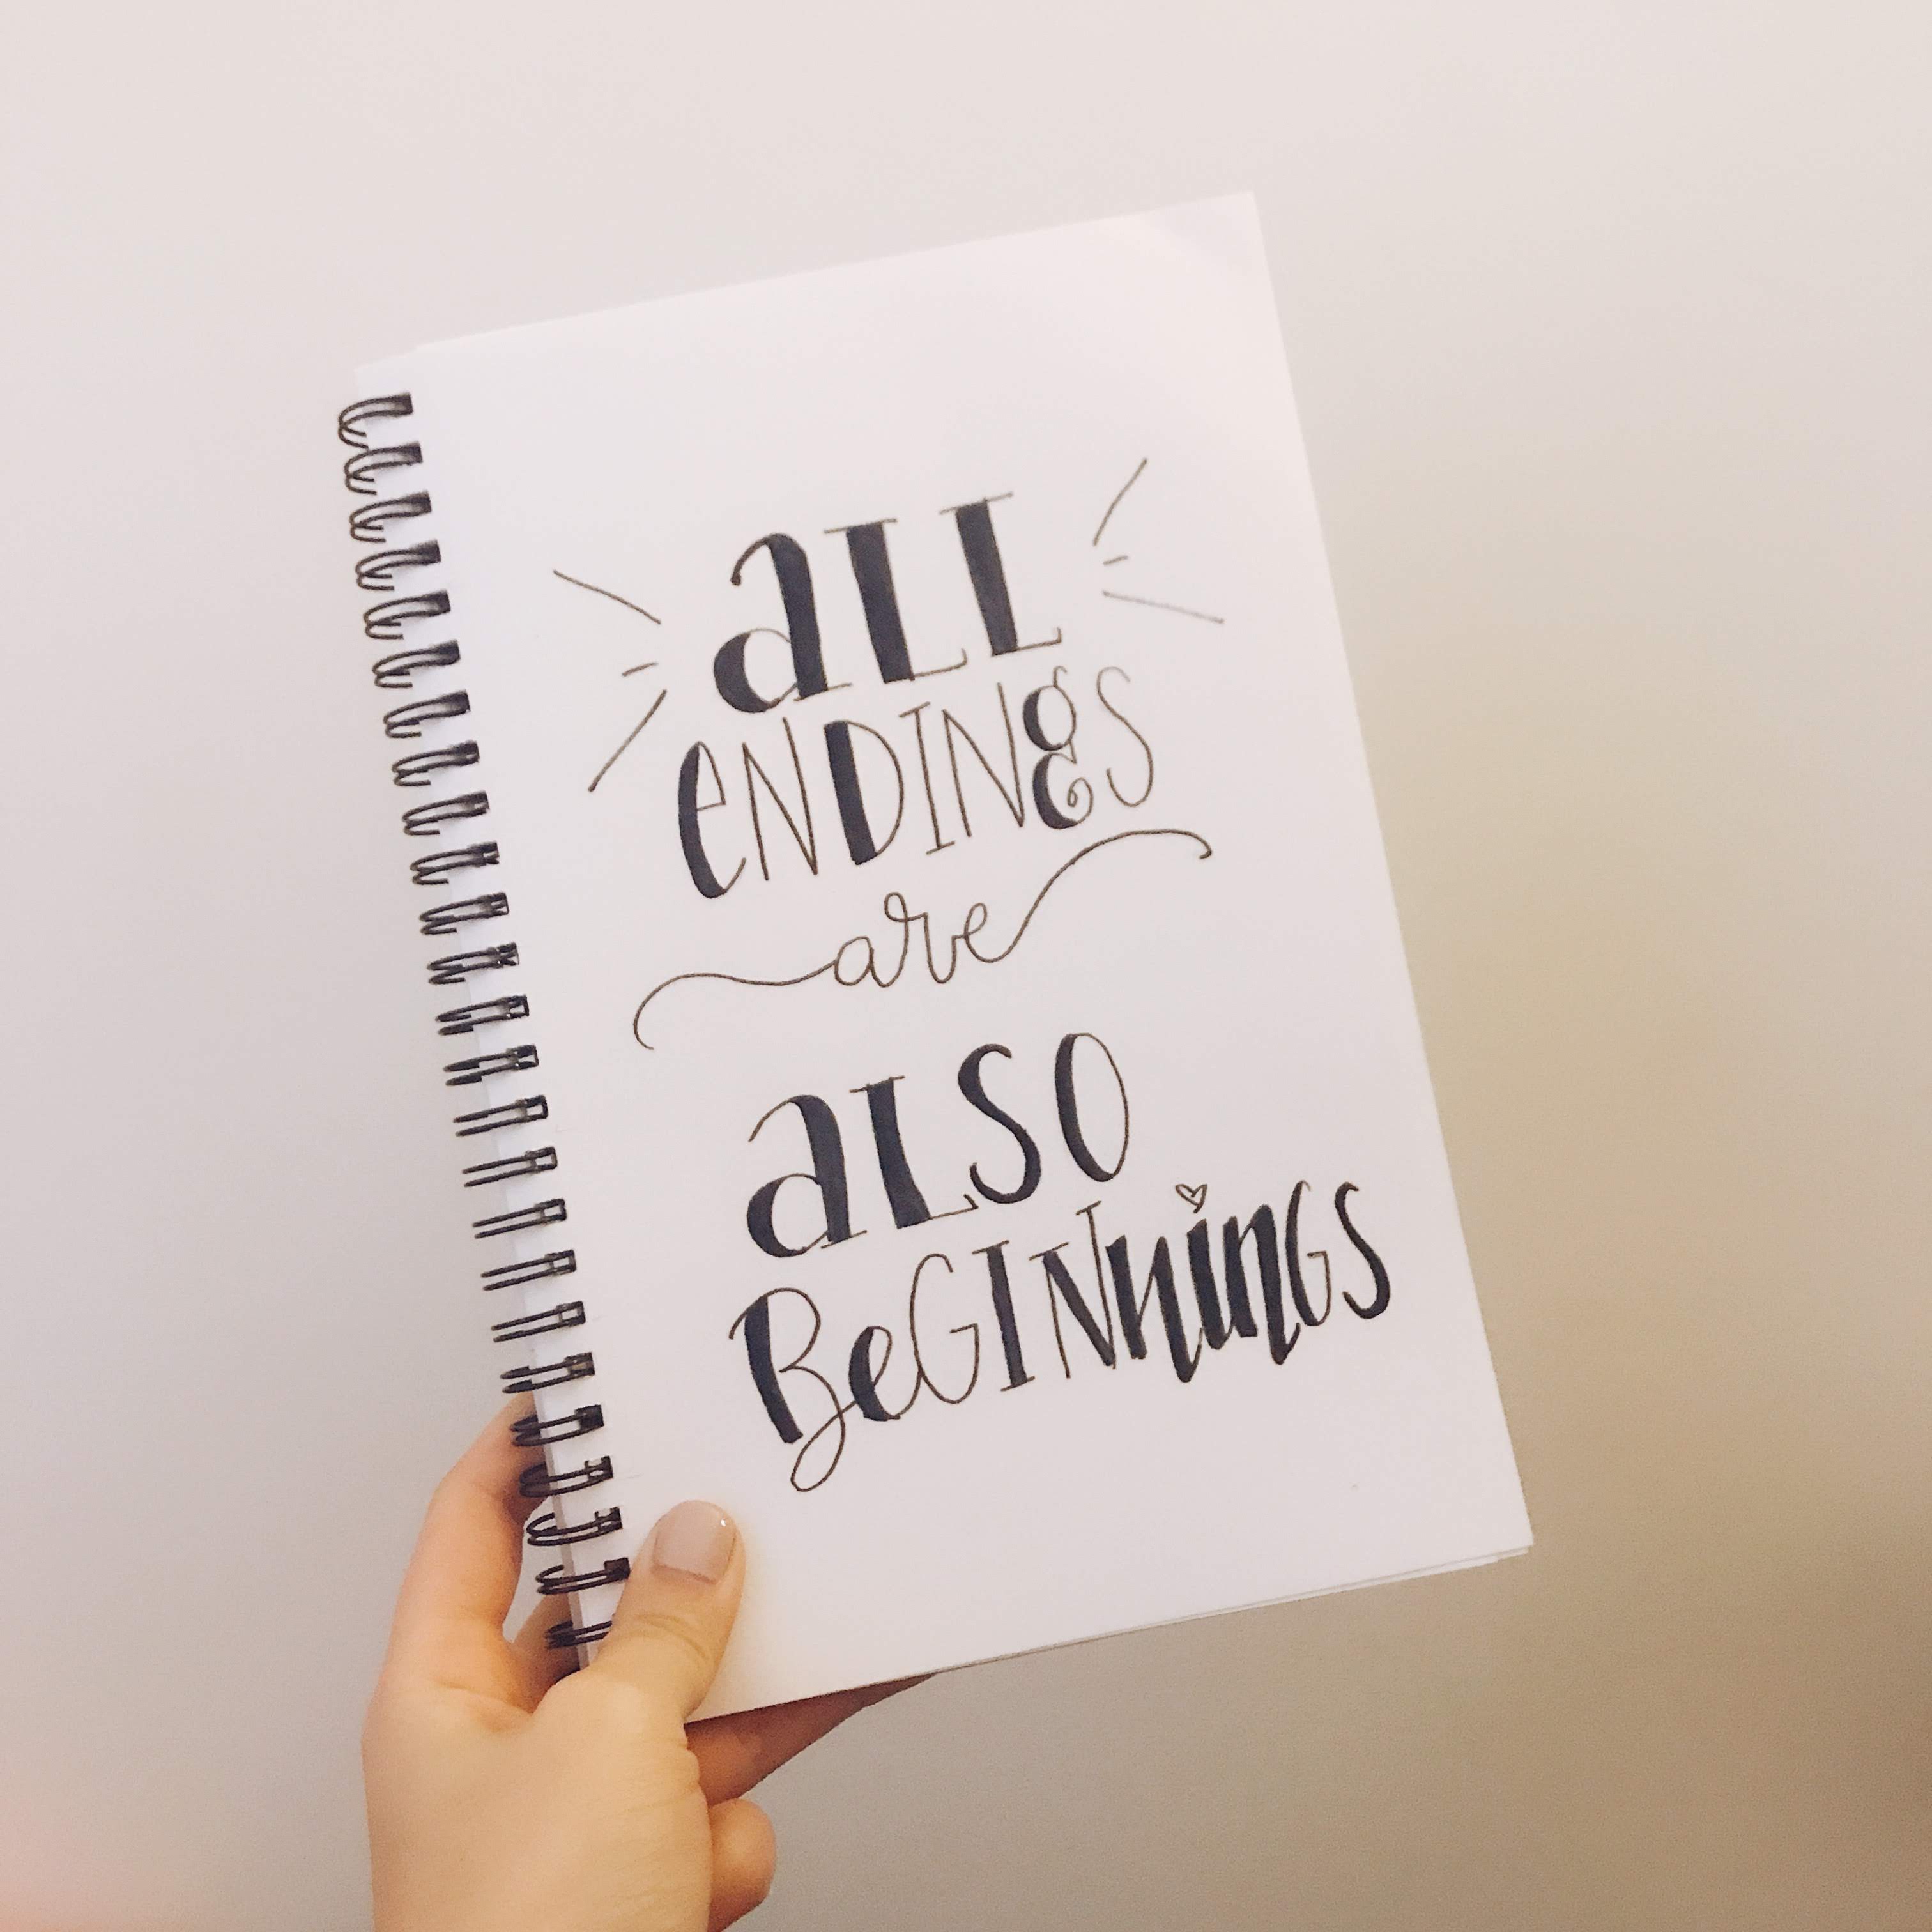 aLL
eNDINgS
are
aLSO
BeGINninGS